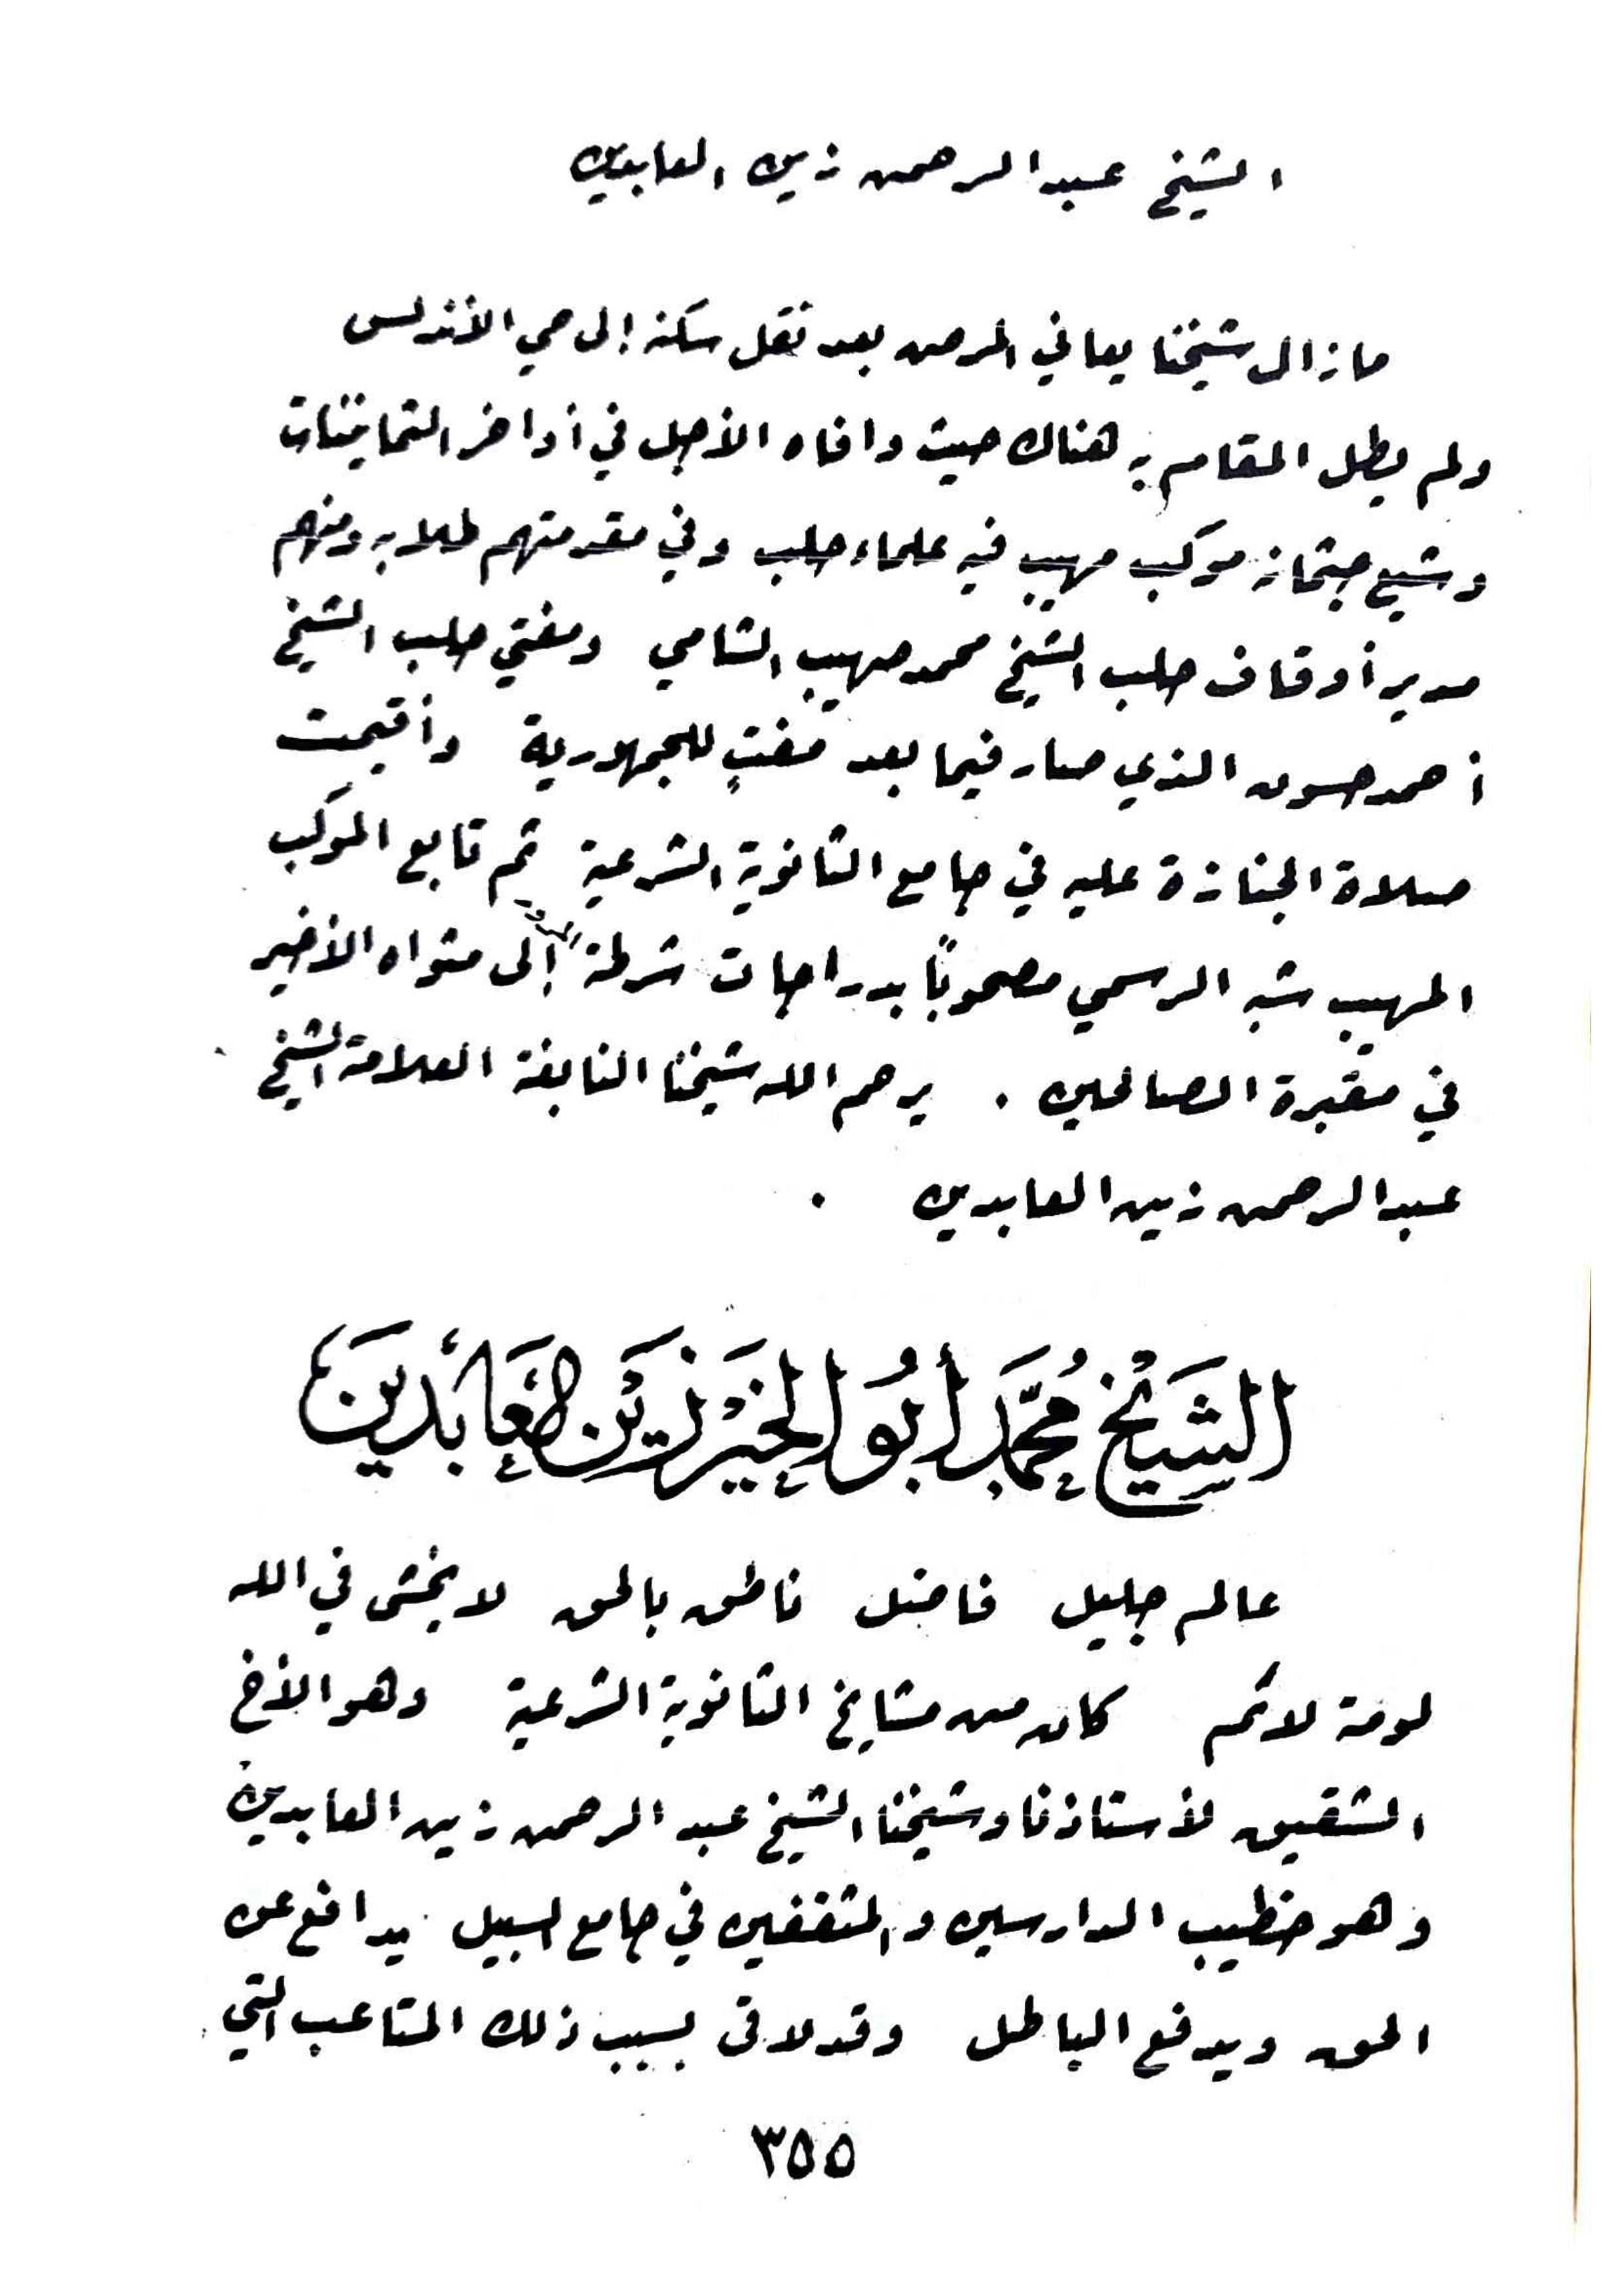 الشيخ عبد الرحمن زين العابدين
مازال شيخنا يعاني المرض بعد نقل سكنه إلى حي الأندلس
ولم يطل المقام به هناك حيث وافاه الأجل في أواخر الثمانينات
وشيع جثمانه موكب مهيب فيه علماء حلب وفي مقدمتهم طلابه ومنهم
مدير أوقاف حلب الشيخ محمد صهيب الشامي ومفتي حلب الشيخ
أحمد حسون الذي صار فيما بعد مفتٍ للجمهورية وأقيمت
صلاة الجنازة عليه في جامع الثانوية الشرعية ثم تابع الموكب
المهيب شبه الرسمي مصحوباً بدراجات شرطة إلى مثواه الأخير
في مقبرة الصالحين . يرحم الله شيخنا النابغة العلامة الشيخ
عبد الرحمن زين العابدين .
الشَيْخ مُحَمَّد أَبُو الخَيْر زَيْن العَابِدين
عالم جليل فاضل ناطق بالحق لا يخشى في الله
لومة لائم كان من مشايخ الثانوية الشرعية وهو الأخ
الشقيق لأستاذنا وشيخنا الشيخ عبد الرحمن زين العابدين
وهو خطيب الدارسين والمثقفين في جامع السبيل يدافع عن
الحق ويدفع الباطل وقد لاقى بسبب ذلك المتاعب التي
٣٥٥